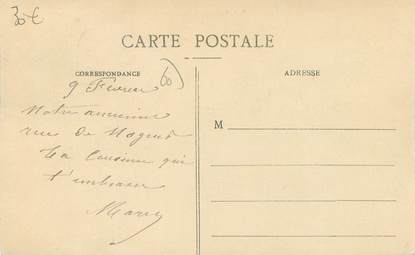 30 €
CARTE POSTALE
CORRESPONDANCE
ADRESSE
60
9 Février
Notre ancienne
rue de Nogent
Ta Cousine qui
t'embrasse
M
Marcy